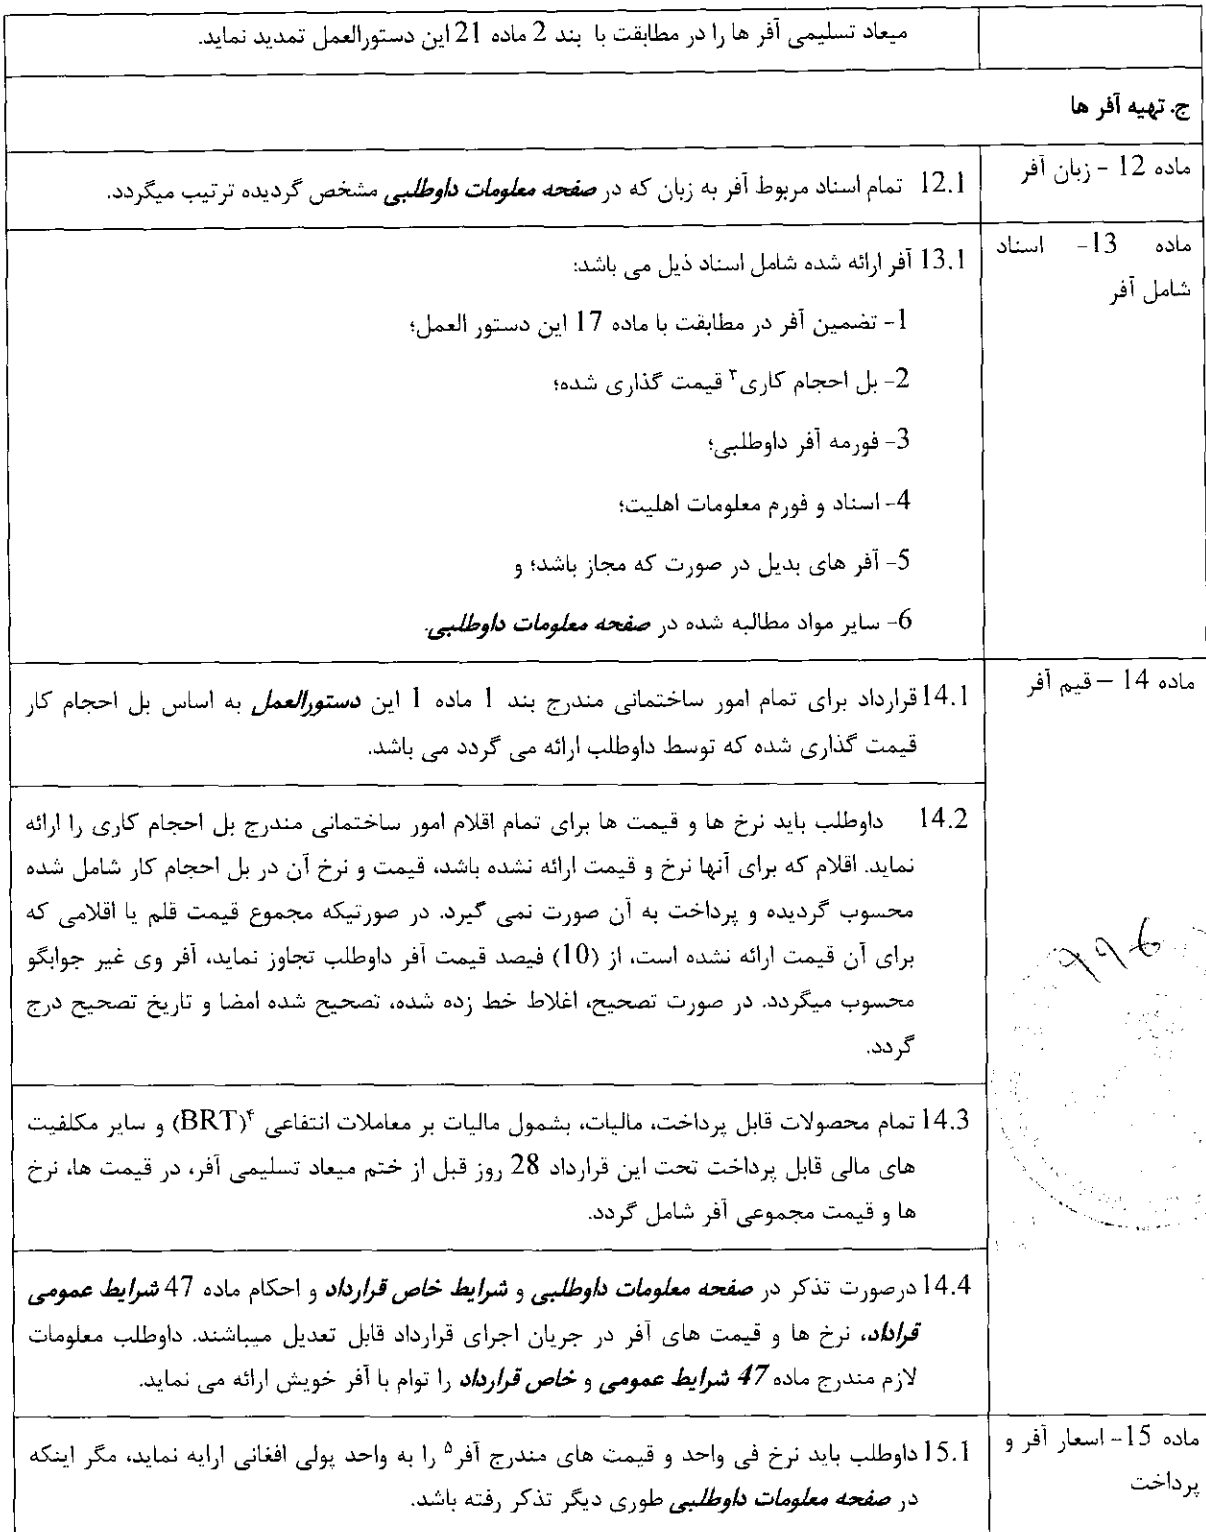 میعاد تسلیمی آفر ها را در مطابقت با بند 2 ماده 21 این دستورالعمل تمدید نماید.
ج. تهیه آفر ها
ماده 12 - زبان آفر
12.1 تمام اسناد مربوط آفر به زبان که در صفحه معلومات داوطلبی مشخص گردیده ترتیب میگردد.
ماده 13- اسناد
شامل آفر
13.1 آفر ارائه شده شامل اسناد ذیل می باشد:
1- تضمین آفر در مطابقت با ماده 17 این دستور العمل؛
2- بل احجام کاری۳ قیمت گذاری شده؛
3- فورمه آفر داوطلبی؛
4- اسناد و فورم معلومات اهلیت؛
5- آفر های بدیل در صورت که مجاز باشد؛ و
6- سایر مواد مطالبه شده در صفحه معلومات داوطلبی.
ماده 14 – قیم آفر
14.1 قرارداد برای تمام امور ساختمانی مندرج بند 1 ماده 1 این دستورالعمل به اساس بل احجام کار
قیمت گذاری شده که توسط داوطلب ارائه می گردد می باشد.
14.2 داوطلب باید نرخ ها و قیمت ها برای تمام اقلام امور ساختمانی مندرج بل احجام کاری را ارائه
نماید. اقلام که برای آنها نرخ و قیمت ارائه نشده باشد، قیمت و نرخ آن در بل احجام کار شامل شده
محسوب گردیده و پرداخت به آن صورت نمی گیرد. در صورتیکه مجموع قیمت قلم یا اقلامی که
برای آن قیمت ارائه نشده است، از (10) فیصد قیمت آفر داوطلب تجاوز نماید، آفر وی غیر جوابگو
محسوب میگردد. در صورت تصحیح، اغلاط خط زده شده، تصحیح شده امضا و تاریخ تصحیح درج
گردد.
14.3 تمام محصولات قابل پرداخت، مالیات، بشمول مالیات بر معاملات انتفاعی (BRT)۴ و سایر مکلفیت
های مالی قابل پرداخت تحت این قرارداد 28 روز قبل از ختم میعاد تسلیمی آفر، در قیمت ها، نرخ
ها و قیمت مجموعی آفر شامل گردد.
14.4 درصورت تذکر در صفحه معلومات داوطلبی و شرایط خاص قرارداد و احکام ماده 47 شرایط عمومی
قراداد، نرخ ها و قیمت های آفر در جریان اجرای قرارداد قابل تعدیل میباشند. داوطلب معلومات
لازم مندرج ماده 47 شرایط عمومی و خاص قرارداد را توام با آفر خویش ارائه می نماید.
ماده 15- اسعار آفر و
پرداخت
15.1 داوطلب باید نرخ فی واحد و قیمت های مندرج آفر۵ را به واحد پولی افغانی ارایه نماید، مگر اینکه
در صفحه معلومات داوطلبی طوری دیگر تذکر رفته باشد.